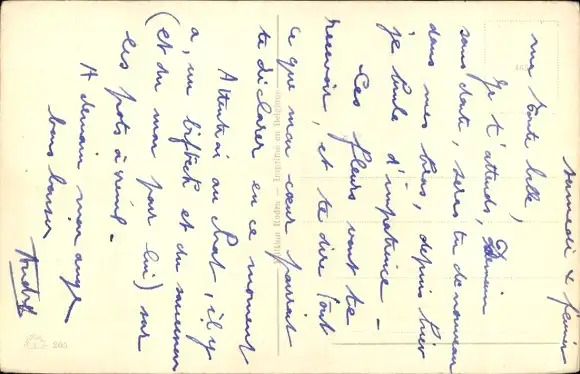 samedi 4 février
ma toute belle,
Je t'attends, Demain
sans doute, seras tu de nouveau
dans mes bras, depuis hier
je brûle d'impatience -
Ces fleurs vont te
recevoir, et te dire tout
ce que mon cœur pourrait
te déclarer en ce moment
Attention au chat, il y
a, un bifteck et du saucisson
(et du mou pour lui) sur
les pots à
A demain mon ange
bons baisers
André
Edition
Imprimé en Belgique
265